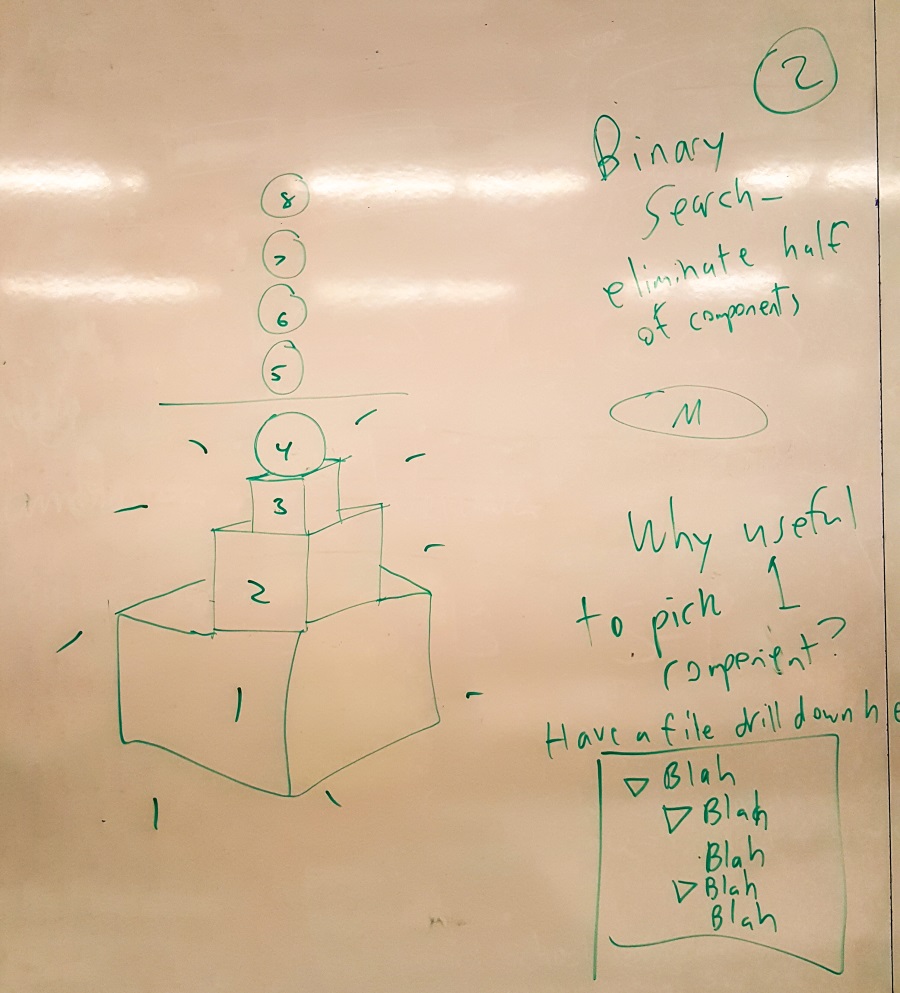 2
Binary
Search-
eliminate half
of components
M
Why useful
to pick 1
component?
Have a file drill down he
▽ Blah
▽ Blah
Blah
▽ Blah
Blah
8
7
6
5
4
3
2
1